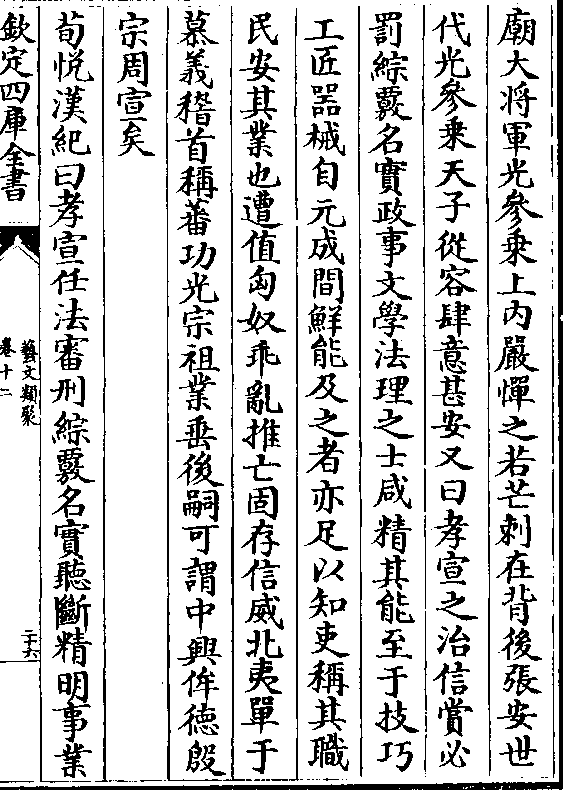 廟大将軍光參乗上内嚴憚之若芒刺在背後張安世
代光參乗天子從容肆意甚安又曰孝宣之治信賞必
罰綜覈名實政事文學法理之士咸精其能至于技巧
工匠器械自元成間鮮能及之者亦足以知吏稱其職
民安其業也遭值匈奴乖亂推亡固存信威北夷單于
慕義稽首稱蕃功光宗祖業垂後嗣可謂中興侔德殷
宗周宣矣
荀悅漢紀曰孝宣任法審刑綜覈名實聽斷精明事業
欽定四庫全書
藝文類聚
卷十二
二十六